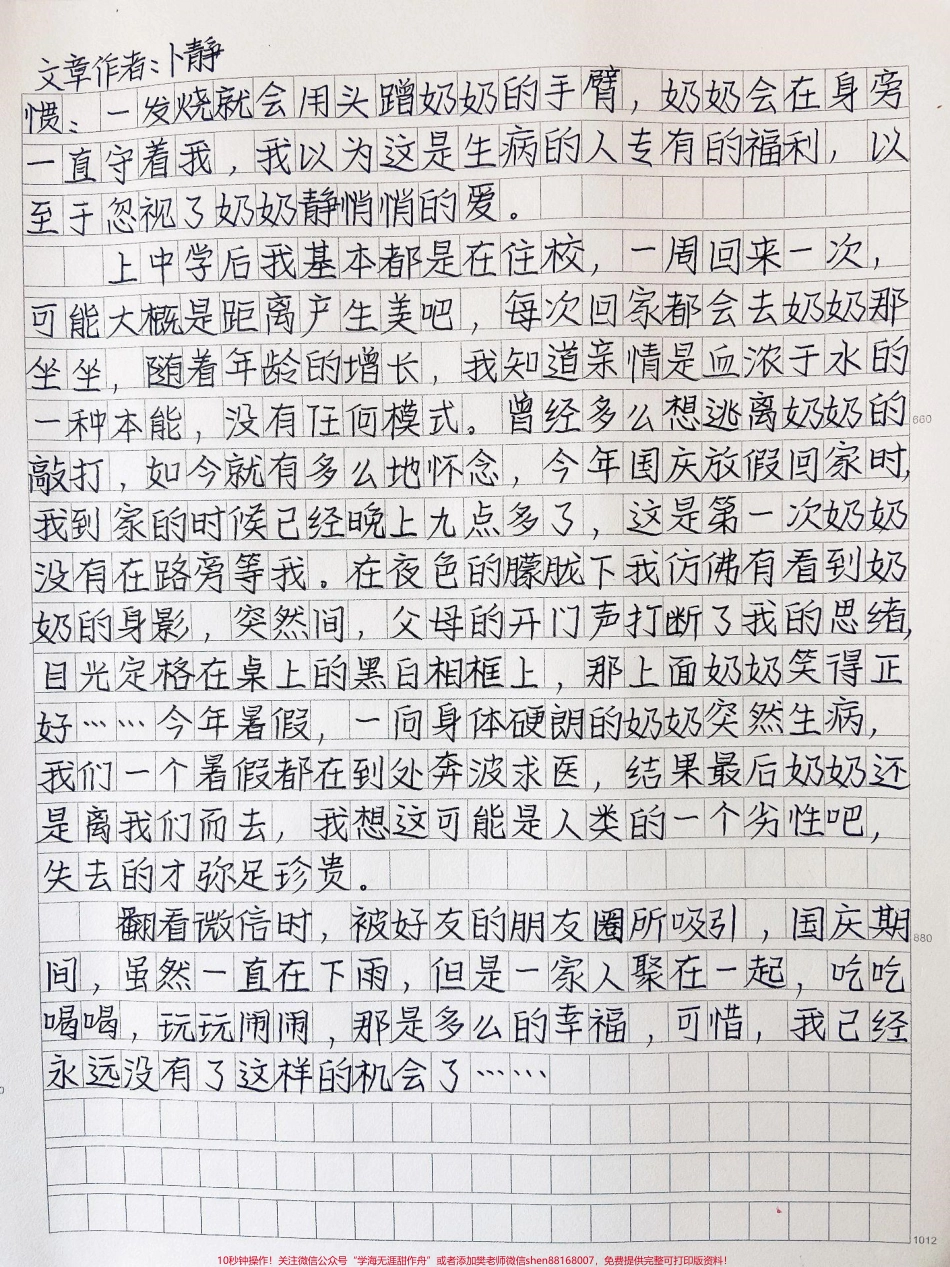 文章作者：卜静
惯：一发烧就会用头蹭奶奶的手臂，奶奶会在身旁
一直守着我，我以为这是生病的人专有的福利，以
至于忽视了奶奶静悄悄的爱。
上中学后我基本都是在住校，一周回来一次，
可能大概是距离产生美吧，每次回家都会去奶奶那
坐坐，随着年龄的增长，我知道亲情是血浓于水的
一种本能，没有任何模式。曾经多么想逃离奶奶的 660
敲打，如今就有多么地怀念，今年国庆放假回家时，
我到家的时候已经晚上九点多了，这是第一次奶奶
没有在路旁等我。在夜色的朦胧下我仿佛有看到奶
奶的身影，突然间，父母的开门声打断了我的思绪，
目光定格在桌上的黑白相框上，那上面奶奶笑得正
好……今年暑假，一向身体硬朗的奶奶突然生病，
我们一个暑假都在到处奔波求医，结果最后奶奶还
是离我们而去，我想这可能是人类的一个劣性吧，
失去的才弥足珍贵。
翻看微信时，被好友的朋友圈所吸引，国庆期 880
间，虽然一直在下雨，但是一家人聚在一起，吃吃
喝喝，玩玩闹闹，那是多么的幸福，可惜，我已经
永远没有了这样的机会了……
1012
10秒钟操作！关注微信公众号“学海无涯甜作舟”或者添加樊老师微信shen88168007，免费提供完整可打印版资料！